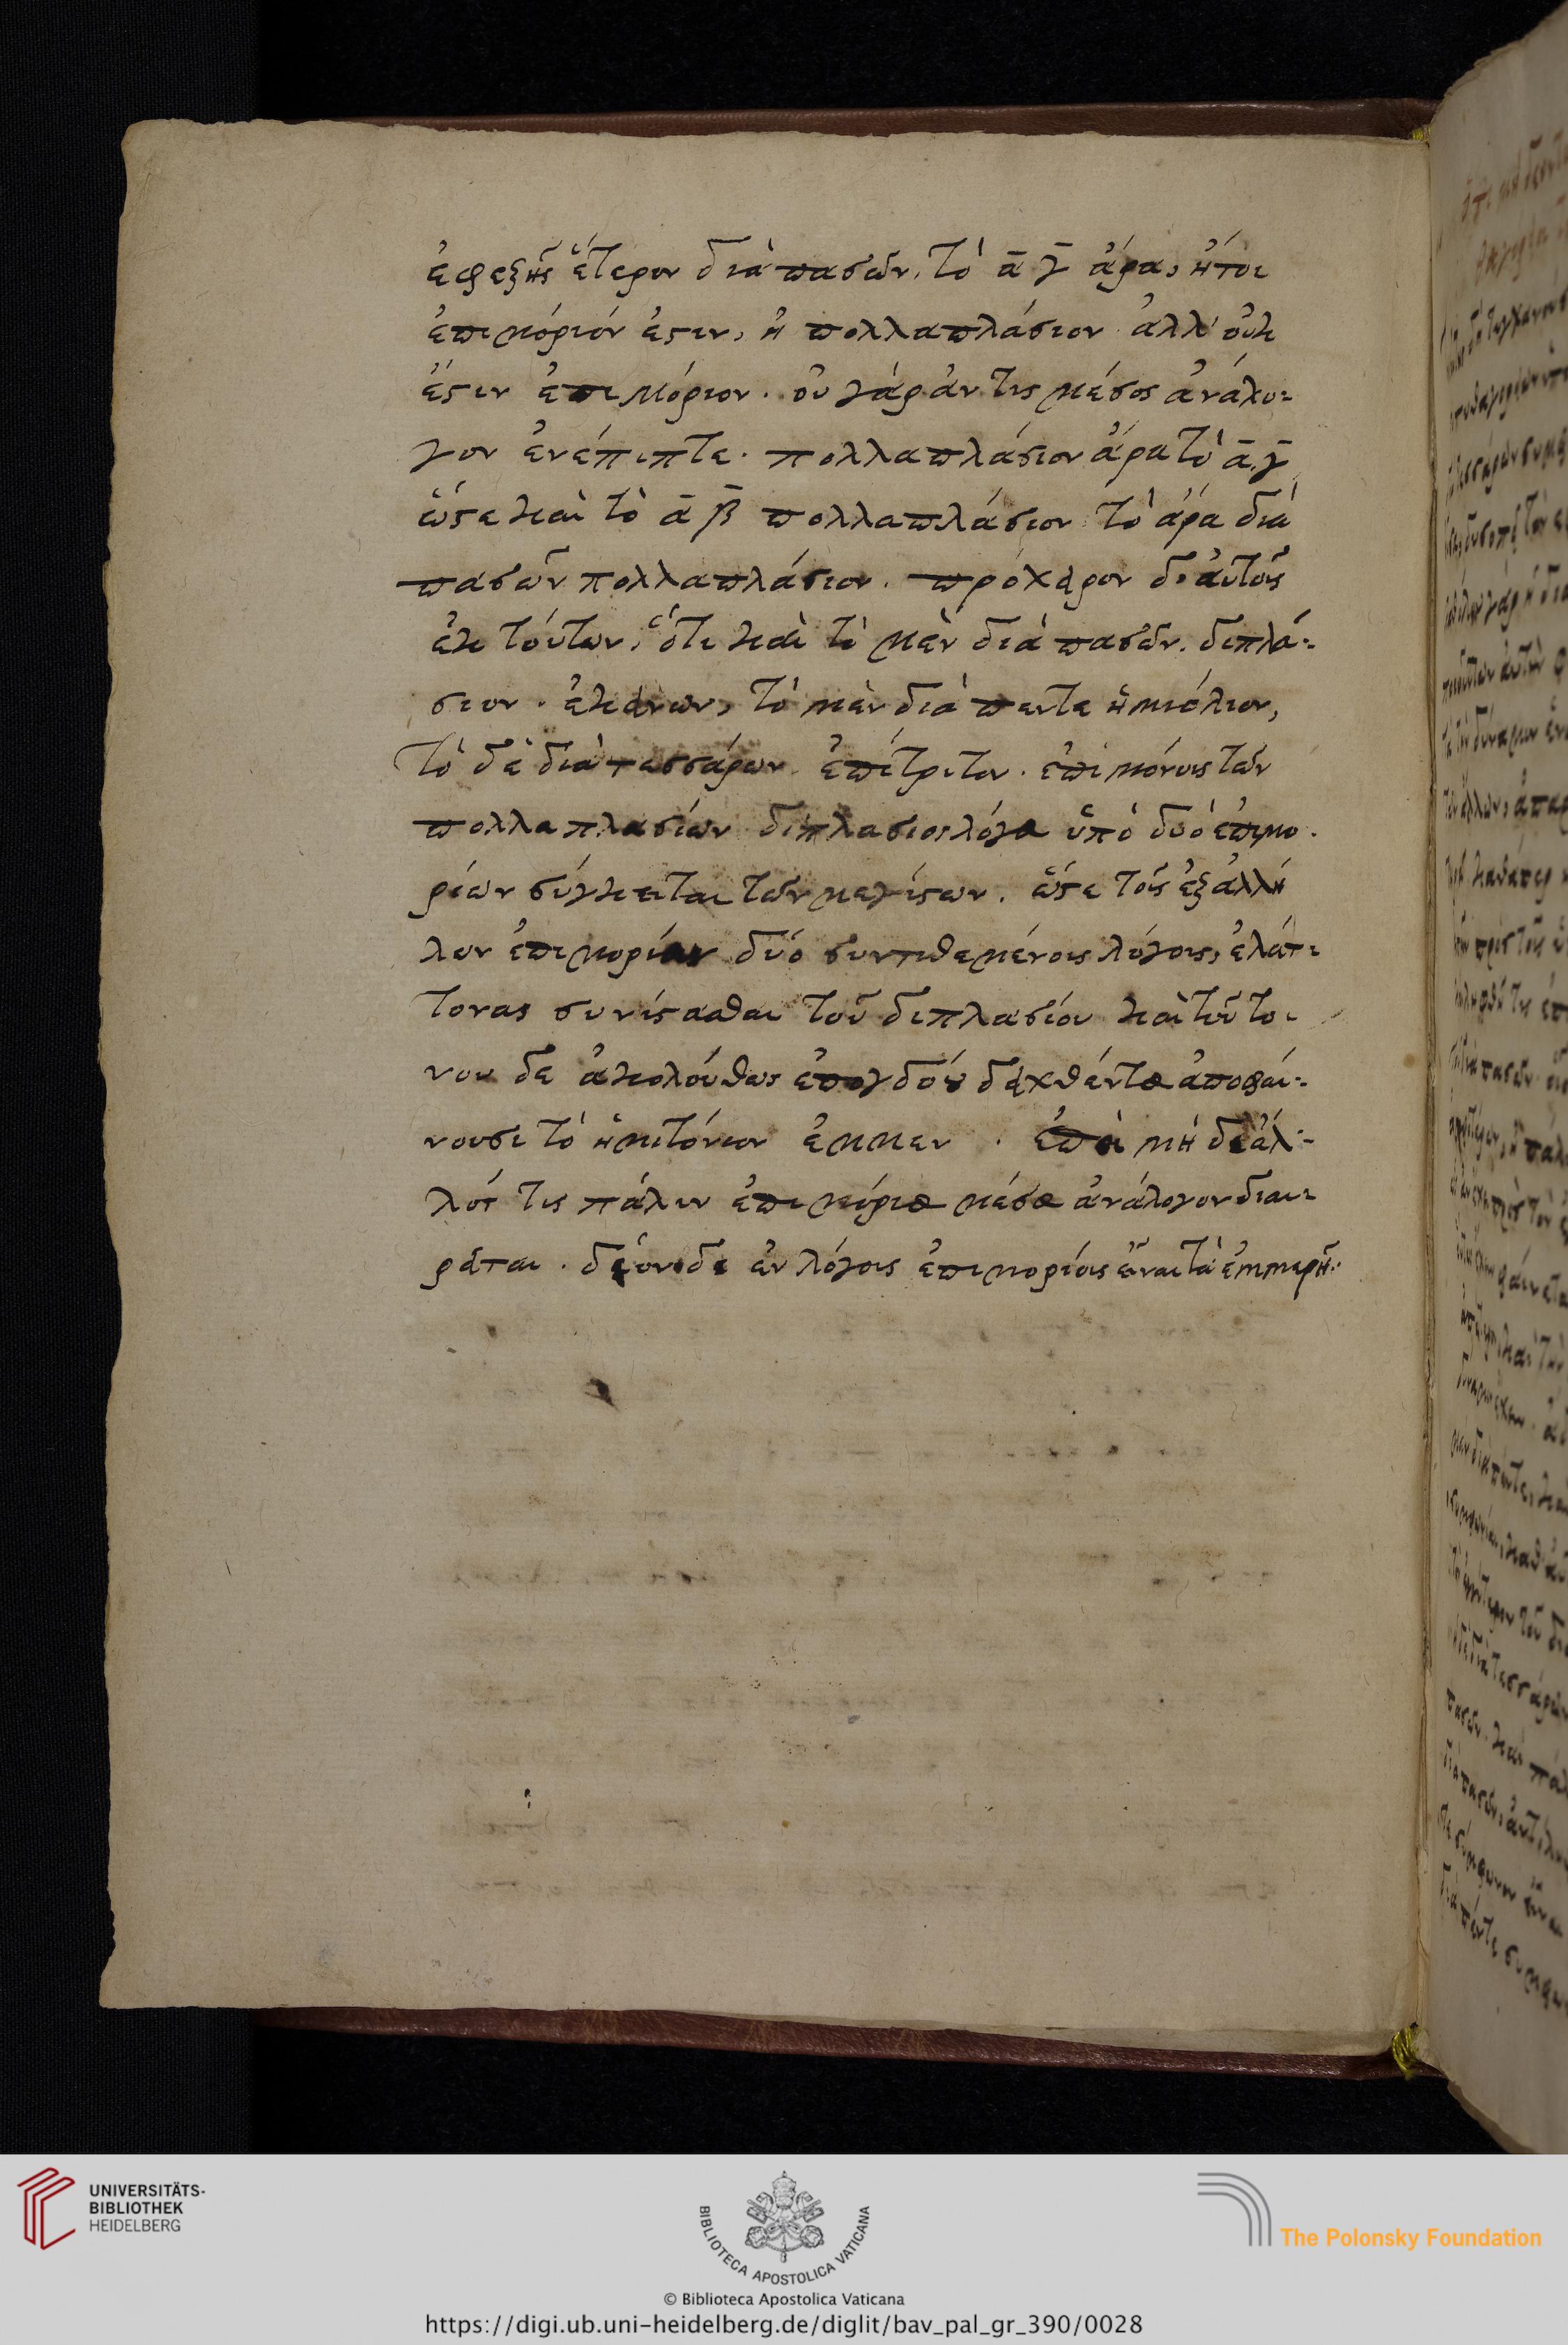 ἐφεξῆς ἕτερον διὰ πασῶν. τὸ ᾱ γ̄ ἄρα, ἤτοι
ἐπιμόριόν ἐστιν, ἢ πολλαπλάσιον. ἀλλ' οὐκ
ἔστιν ἐπιμόριον. οὐ γὰρ ἄν τις μέσος ἀνάλο-
γον ἐνέπιπτε. πολλαπλάσιον ἄρα τὸ ᾱ γ̄
ὥστε καὶ τὸ ᾱ β̄ πολλαπλάσιον τὸ ἄρα διὰ
πασῶν πολλαπλάσιον. πρόχειρον δ' αὐτοῖς
ἐκ τούτων, ὅτι καὶ τὸ μὲν διὰ πασῶν. διπλά-
σιον. ἐκείνων, τὸ μὲν διὰ πεντε ἡμιόλιον,
τὸ δὲ διὰ τεσσάρων ἐπίτριτον. ἐπὶ μόνοις τῶν
πολλαπλασίων διπλασιος λόγος ὑπὸ δυὸ ἐπιμο-
ρίων σύγκειται τῶν μεγίστων. ὥστε τοῖς ἐξ ἀλλή
λων ἐπιμορίων δύο συντιθεμένοις λόγοις, ἐλάτ-
τονας συνίστασθαι τοῦ διπλασίου καὶ τοῦ το-
νου δε ἀκολούθως ἐπογδόου δειχθέντος ἀποφαί-
νουσι τὸ ἡμιτόνιον ἐμμεν . ἐπεὶ μὴ δε ἀλ-
λότ τις πάλιν ἐπιμόριος μέσος ἀνάλογον διαι-
ρεῖται. δέον δε ἐν λόγοις ἐπιμορίοις εἶναι τὰ ἐμμερῆ:
UNIVERSITÄTS-
BIBLIOTHEK
HEIDELBERG
BIBLIOTECA APOSTOLICA VATICANA
The Polonsky Foundation
© Biblioteca Apostolica Vaticana
https://digi.ub.uni-heidelberg.de/diglit/bav_pal_gr_390/0028